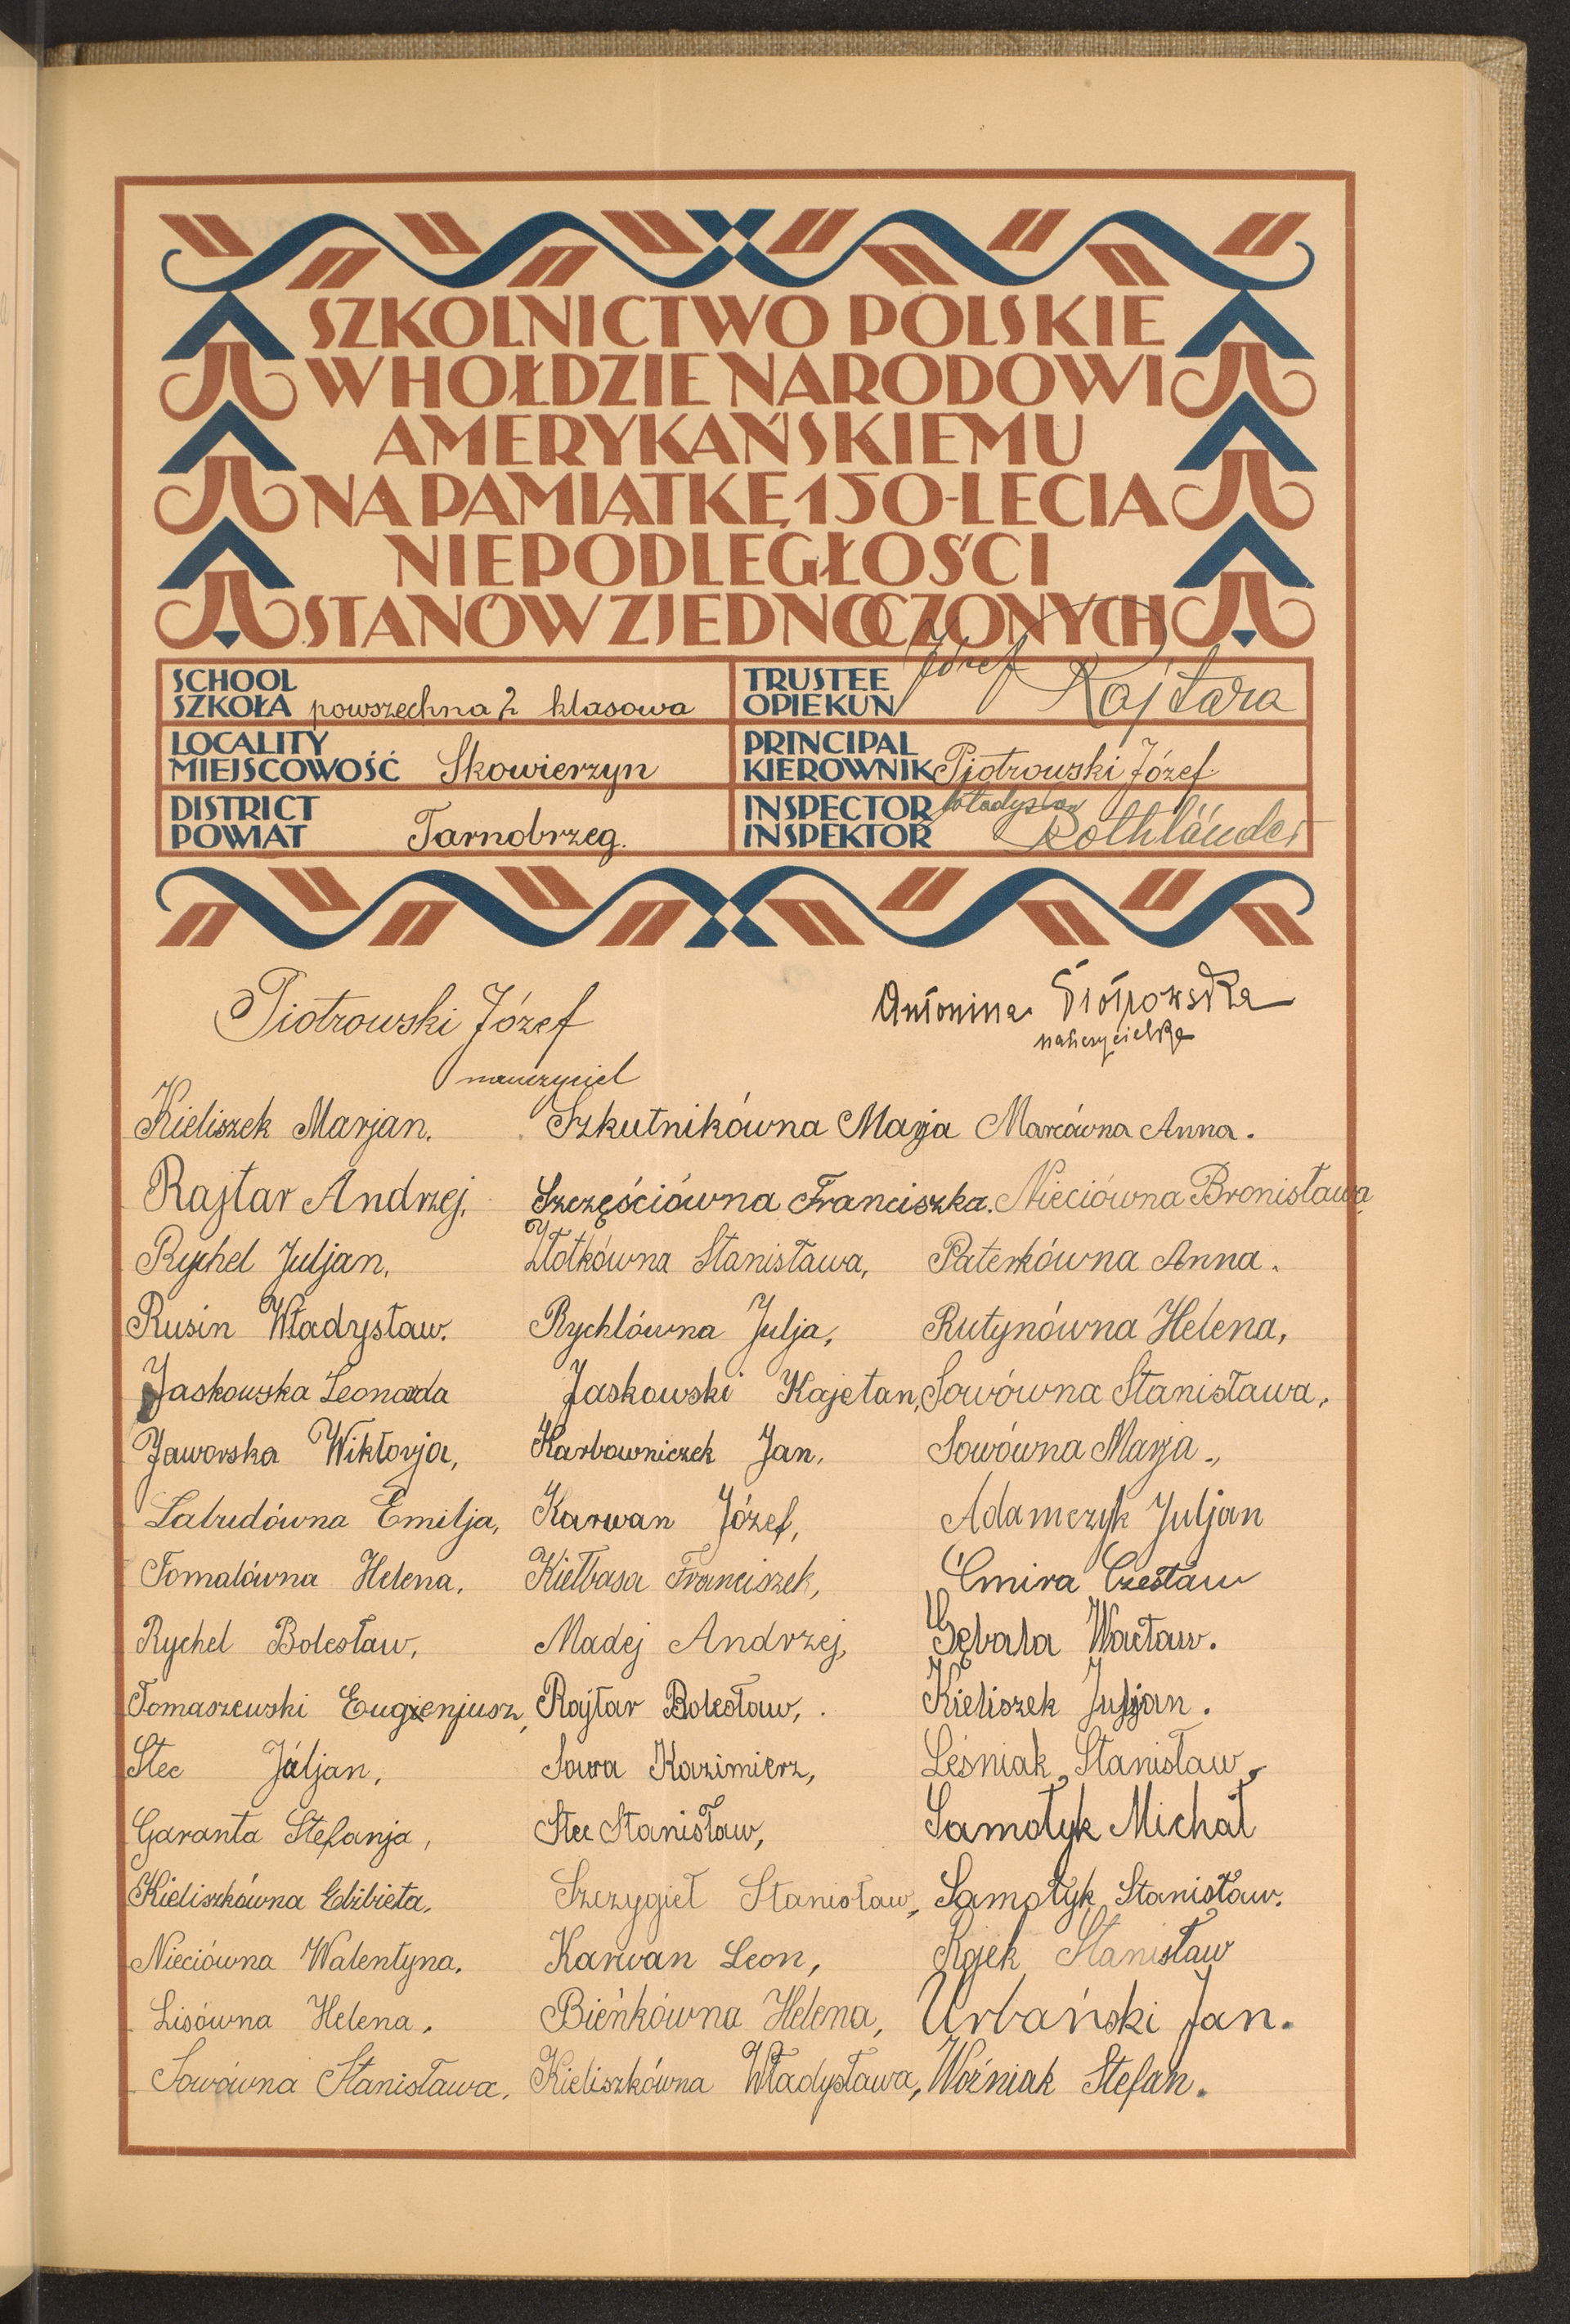 SZKOLNICTWO POLSKIE
W HOŁDZIE NARODOWI
AMERYKAŃSKIEMU
NA PAMIĄTKĘ 150-LECIA
NIEPODLEGŁOŚCI
STANÓW ZJEDNOCZONYCH
SCHOOL
SZKOŁA powszechna 2 klasowa
TRUSTEE
OPIEKUN Józef Rajtara
LOCALITY
MIEJSCOWOŚĆ Skowierzyn
PRINCIPAL
KIEROWNIK Piotrowski Józef
DISTRICT
POWIAT Tarnobrzeg.
INSPECTOR Władysław
INSPEKTOR Rothländer
Piotrowski Józef
nauczyciel
Antonina Piotrowska
nauczycielka
Kieliszek Marjan. Szkutnikówna Marja Marcówna Anna.
Rajtar Andrzej. Szczęściówna Franciszka. Nieciówna Bronisława
Rychel Juljan, Złotkówna Stanisława, Paterkówna Anna.
Rusin Władysław. Rychlówna Julja, Rutynówna Helena,
Jaskowska Leonarda Jaskowski Kajetan, Sowówna Stanisława,
Jaworska Wiktorja, Karbowniczek Jan, Sowówna Marja.,
Labudówna Emilja, Karwan Józef, Adamczyk Juljan
Tomalówna Helena, Kiełbasa Franciszek, Ćmira Czesław
Rychel Bolesław, Madej Andrzej, Gębala Wacław.
Tomaszewski Eugenjusz, Rajtar Bolesław, Kieliszek Juljan.
Stec Juljan, Sowa Kazimierz, Leśniak Stanisław,
Garanta Stefanja, Stec Stanisław, Samołyk Michał
Kieliszkówna Elżbieta, Szczygieł Stanisław, Samołyk Stanisław.
Nieciówna Walentyna, Karwan Leon, Rojek Stanisław
Lisówna Helena, Bieńkówna Helena, Urbański Jan.
Sowówna Stanisława, Kieliszkówna Władysława, Woźniak Stefan.